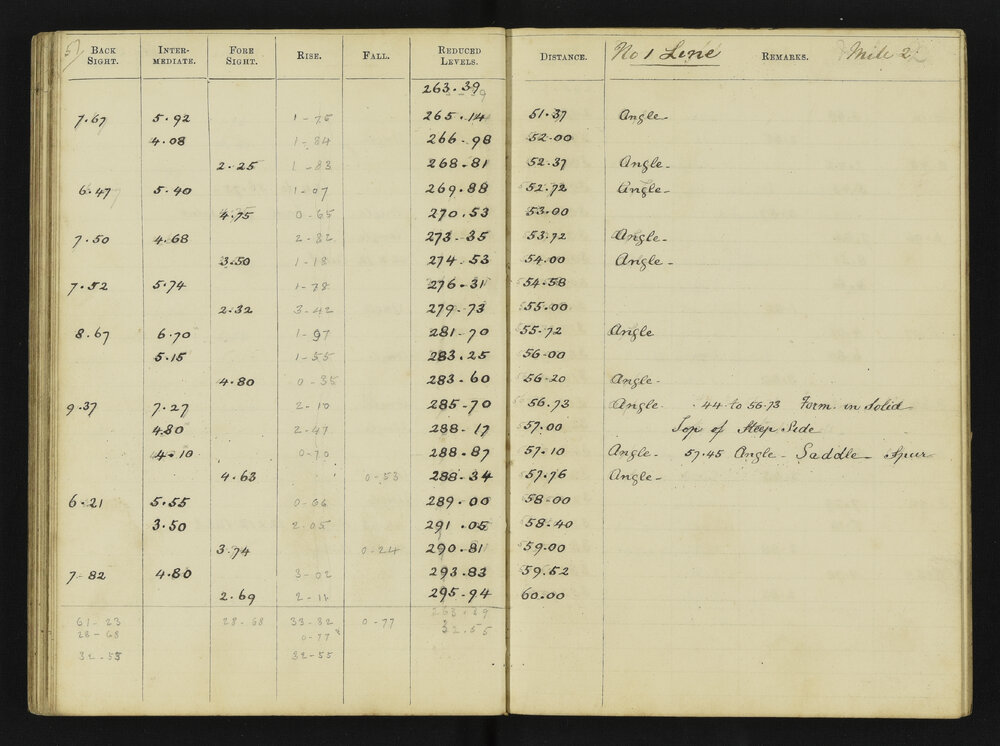 57 BACK SIGHT. INTER-MEDIATE. FORE SIGHT. RISE. FALL. REDUCED LEVELS. DISTANCE. No 1 Line REMARKS. Mile 2
263.39
7.67 5.92 1-75 265.14 51.37 Angle-
4.08 1-84 266-98 52-00
2-25 1-83 268-81 52.37 Angle-
6.47 5.40 1-07 269.88 52.72 Angle-
4.75 0-65 270.53 53.00
7.50 4.68 2-82 273-35 53.72 Angle-
3.50 1-18 274.53 54.00 Angle-
7.52 5.74 1-78 276-31 54-58
2-32 3-42 279-73 55.00
8.67 6.70 1-97 281-70 55-72 Angle
5.15 1-55 283.25 56-00
4.80 0-35 283.60 56-20 Angle-
9.37 7.27 2-10 285-70 56.73 Angle .44 to 56.73 Form. in Solid
4.80 2-47 288-17 57.00 Top of Steep Side
4.10 0-70 288.87 57.10 Angle- 57.45 Angle- Saddle- Spur
4.63 0-53 288-34 57.76 Angle-
6-21 5.55 0-66 289.00 58-00
3.50 2.05 291.05 58-40
3.74 0-24 290.81 59.00
7-82 4.80 3-02 293.83 59.52
2.69 2-11 295-94 60.00
61-23 28-68 33-32 0-77 263-39
28-68 0-77 32.55
32-55 32-55